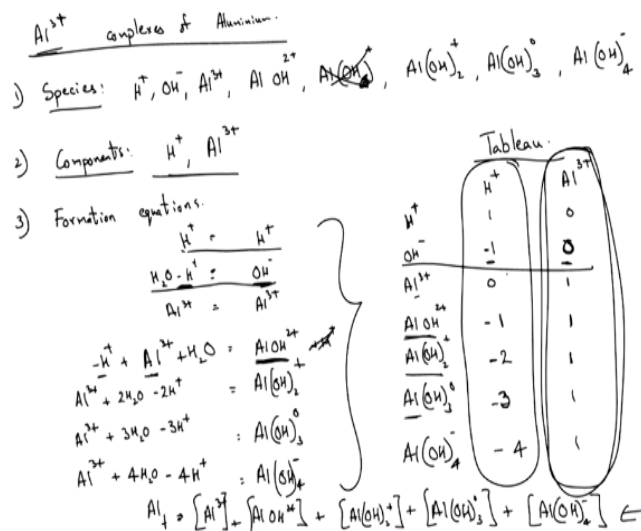 Al³⁺ complexes of Aluminium.
1) Species: H⁺, OH⁻, Al³⁺, AlOH²⁺, Al(OH)₂⁺, Al(OH)₃⁰, Al(OH)₄⁻
2) Components: H⁺, Al³⁺
3) Formation equations.
H⁺ = H⁺
H₂O - H⁺ = OH⁻
Al³⁺ = Al³⁺
-H⁺ + Al³⁺ + H₂O = AlOH²⁺
Al³⁺ + 2H₂O - 2H⁺ = Al(OH)₂⁺
Al³⁺ + 3H₂O - 3H⁺ = Al(OH)₃⁰
Al³⁺ + 4H₂O - 4H⁺ = Al(OH)₄⁻
Tableau.
H⁺ Al³⁺
H⁺ 1 0
OH⁻ -1 0
Al³⁺ 0 1
AlOH²⁺ -1 1
Al(OH)₂⁺ -2 1
Al(OH)₃⁰ -3 1
Al(OH)₄⁻ -4 1
Al_t = [Al³⁺] + [AlOH²⁺] + [Al(OH)₂⁺] + [Al(OH)₃⁰] + [Al(OH)₄⁻] ⇐